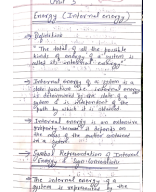 Unit 3
Energy (Internal energy)
→ Definition
"The total of all the possible
kinds of energy of a system is
called its internal energy"
→ Internal energy of a system is a
state function i.e. internal energy
is determined by the state of a
system & is independent of the
path by which it is obtained
→ Internal energy is an extensive
property because it depends on
the mass of the matter contained
in a system
→ Symbol Representation of Internal
Energy & Sign Conventions
→ The internal energy of a
system is represented by the